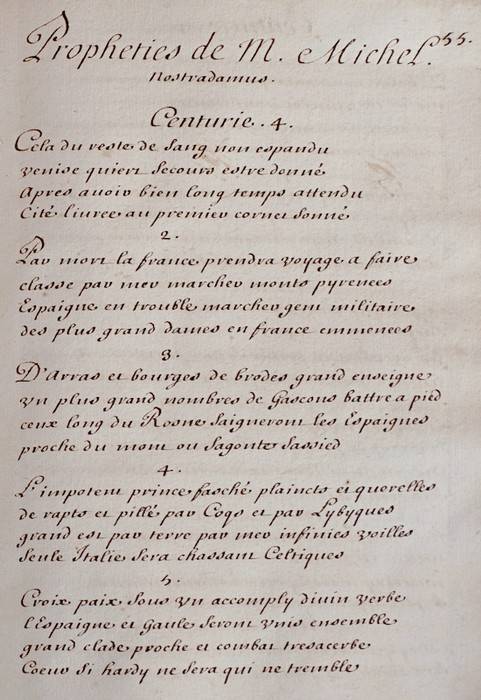 Propheties de M. Michel. 55.
Nostradamus.
Centurie. 4.
Cela du reste de sang non espandu
venise quiert secours estre donné
Apres avoir bien long temps attendu
Cité livree au premier cornet sonné
2.
Par mort la france prendra voyage a faire
classe par mer marcher monts pyrenees
Espaigne en trouble marcher gent militaire
des plus grand dames en france emmenees
3.
D'Arras et bourges de brodes grand enseigne
vn plus grand nombres de Gascons battre a pied
ceux long du Rosne saigneront les Espaignes
proche du mont ou sagonte sassied
4.
L'impotent prince fasché plaincts et querelles
de rapts et pillé par Coqs et par Lybyques
grand est par terre par mer infinies voilles
seule Italie sera chassant Celtiques
5.
Croix paix sous vn accomply divin verbe
l'Espaigne et Gaule seront vnis ensemble
grand clade proche et combat tresacerbe
Coeur si hardy ne sera qui ne tremble